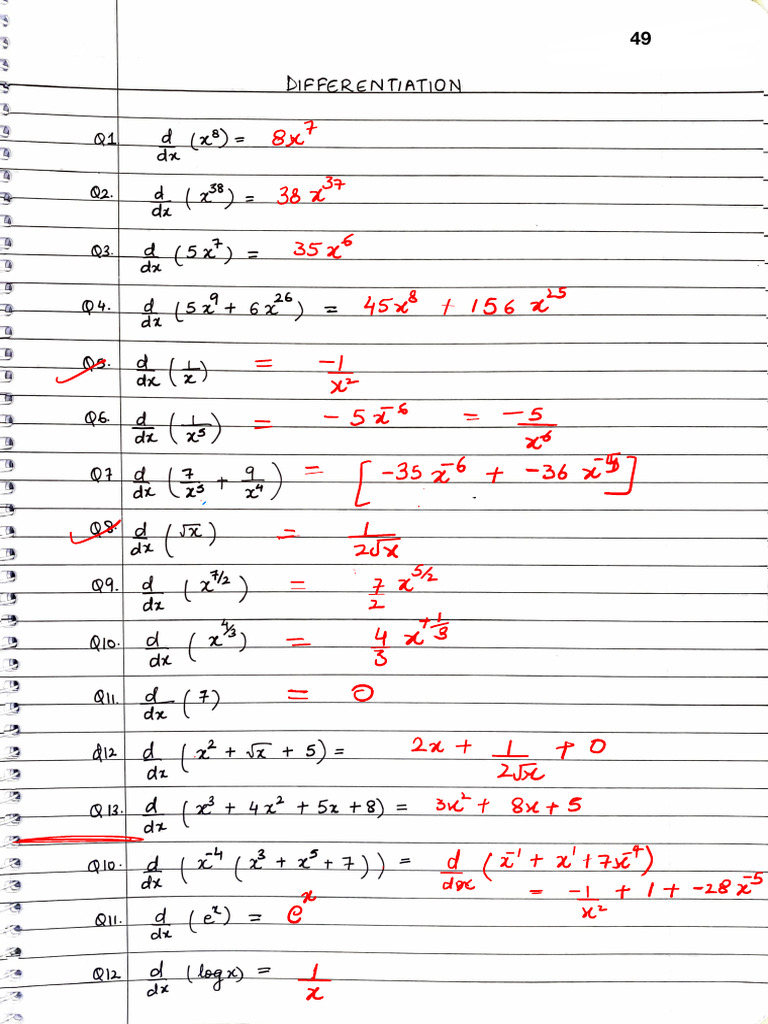 49
DIFFERENTIATION
Q1 d/dx (x⁸) = 8x⁷
Q2. d/dx (x³⁸) = 38x³⁷
Q3. d/dx (5x⁷) = 35x⁶
Q4. d/dx (5x⁹ + 6x²⁶) = 45x⁸ + 156x²⁵
Q5. d/dx (1/x) = -1/x²
Q6. d/dx (1/x⁵) = -5x⁻⁶ = -5/x⁶
Q7 d/dx (7/x⁵ + 9/x⁴) = [-35x⁻⁶ + -36x⁻⁵]
Q8. d/dx (√x) = 1/2√x
Q9. d/dx (x^7/2) = 7/2 x^5/2
Q10. d/dx (x^4/3) = 4/3 x^+1/3
Q11. d/dx (7) = 0
Q12 d/dx (x² + √x + 5) = 2x + 1/2√x + 0
Q13. d/dx (x³ + 4x² + 5x + 8) = 3x² + 8x + 5
Q10. d/dx (x⁻⁴ (x³ + x⁵ + 7)) = d/dx (x⁻¹ + x¹ + 7x⁻⁴)
= -1/x² + 1 + -28x⁻⁵
Q11. d/dx (eˣ) = eˣ
Q12 d/dx (log x) = 1/x